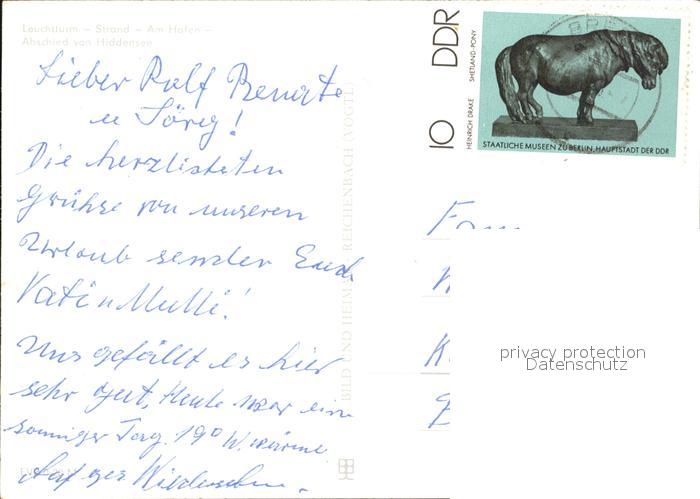 Leuchtturm – Strand – Am Hafen –
Abschied von Hiddensee
Lieber Rolf Renate
u Jörg!
Die herzlichsten
Grühse von unseren
Urlaub senden Euch
Vati u Mutti!
Uns gefällt es hier
sehr gut, Heute war ein
sonniger Tag. 19° W. wärme
Auf Wiedersehn.
BILD UND HEIMAT REICHENBACH (VOGTL)
DDR
10
HEINRICH DRAKE SHETLAND-PONY
STAATLICHE MUSEEN ZU BERLIN, HAUPTSTADT DER DDR
privacy protection
Datenschutz